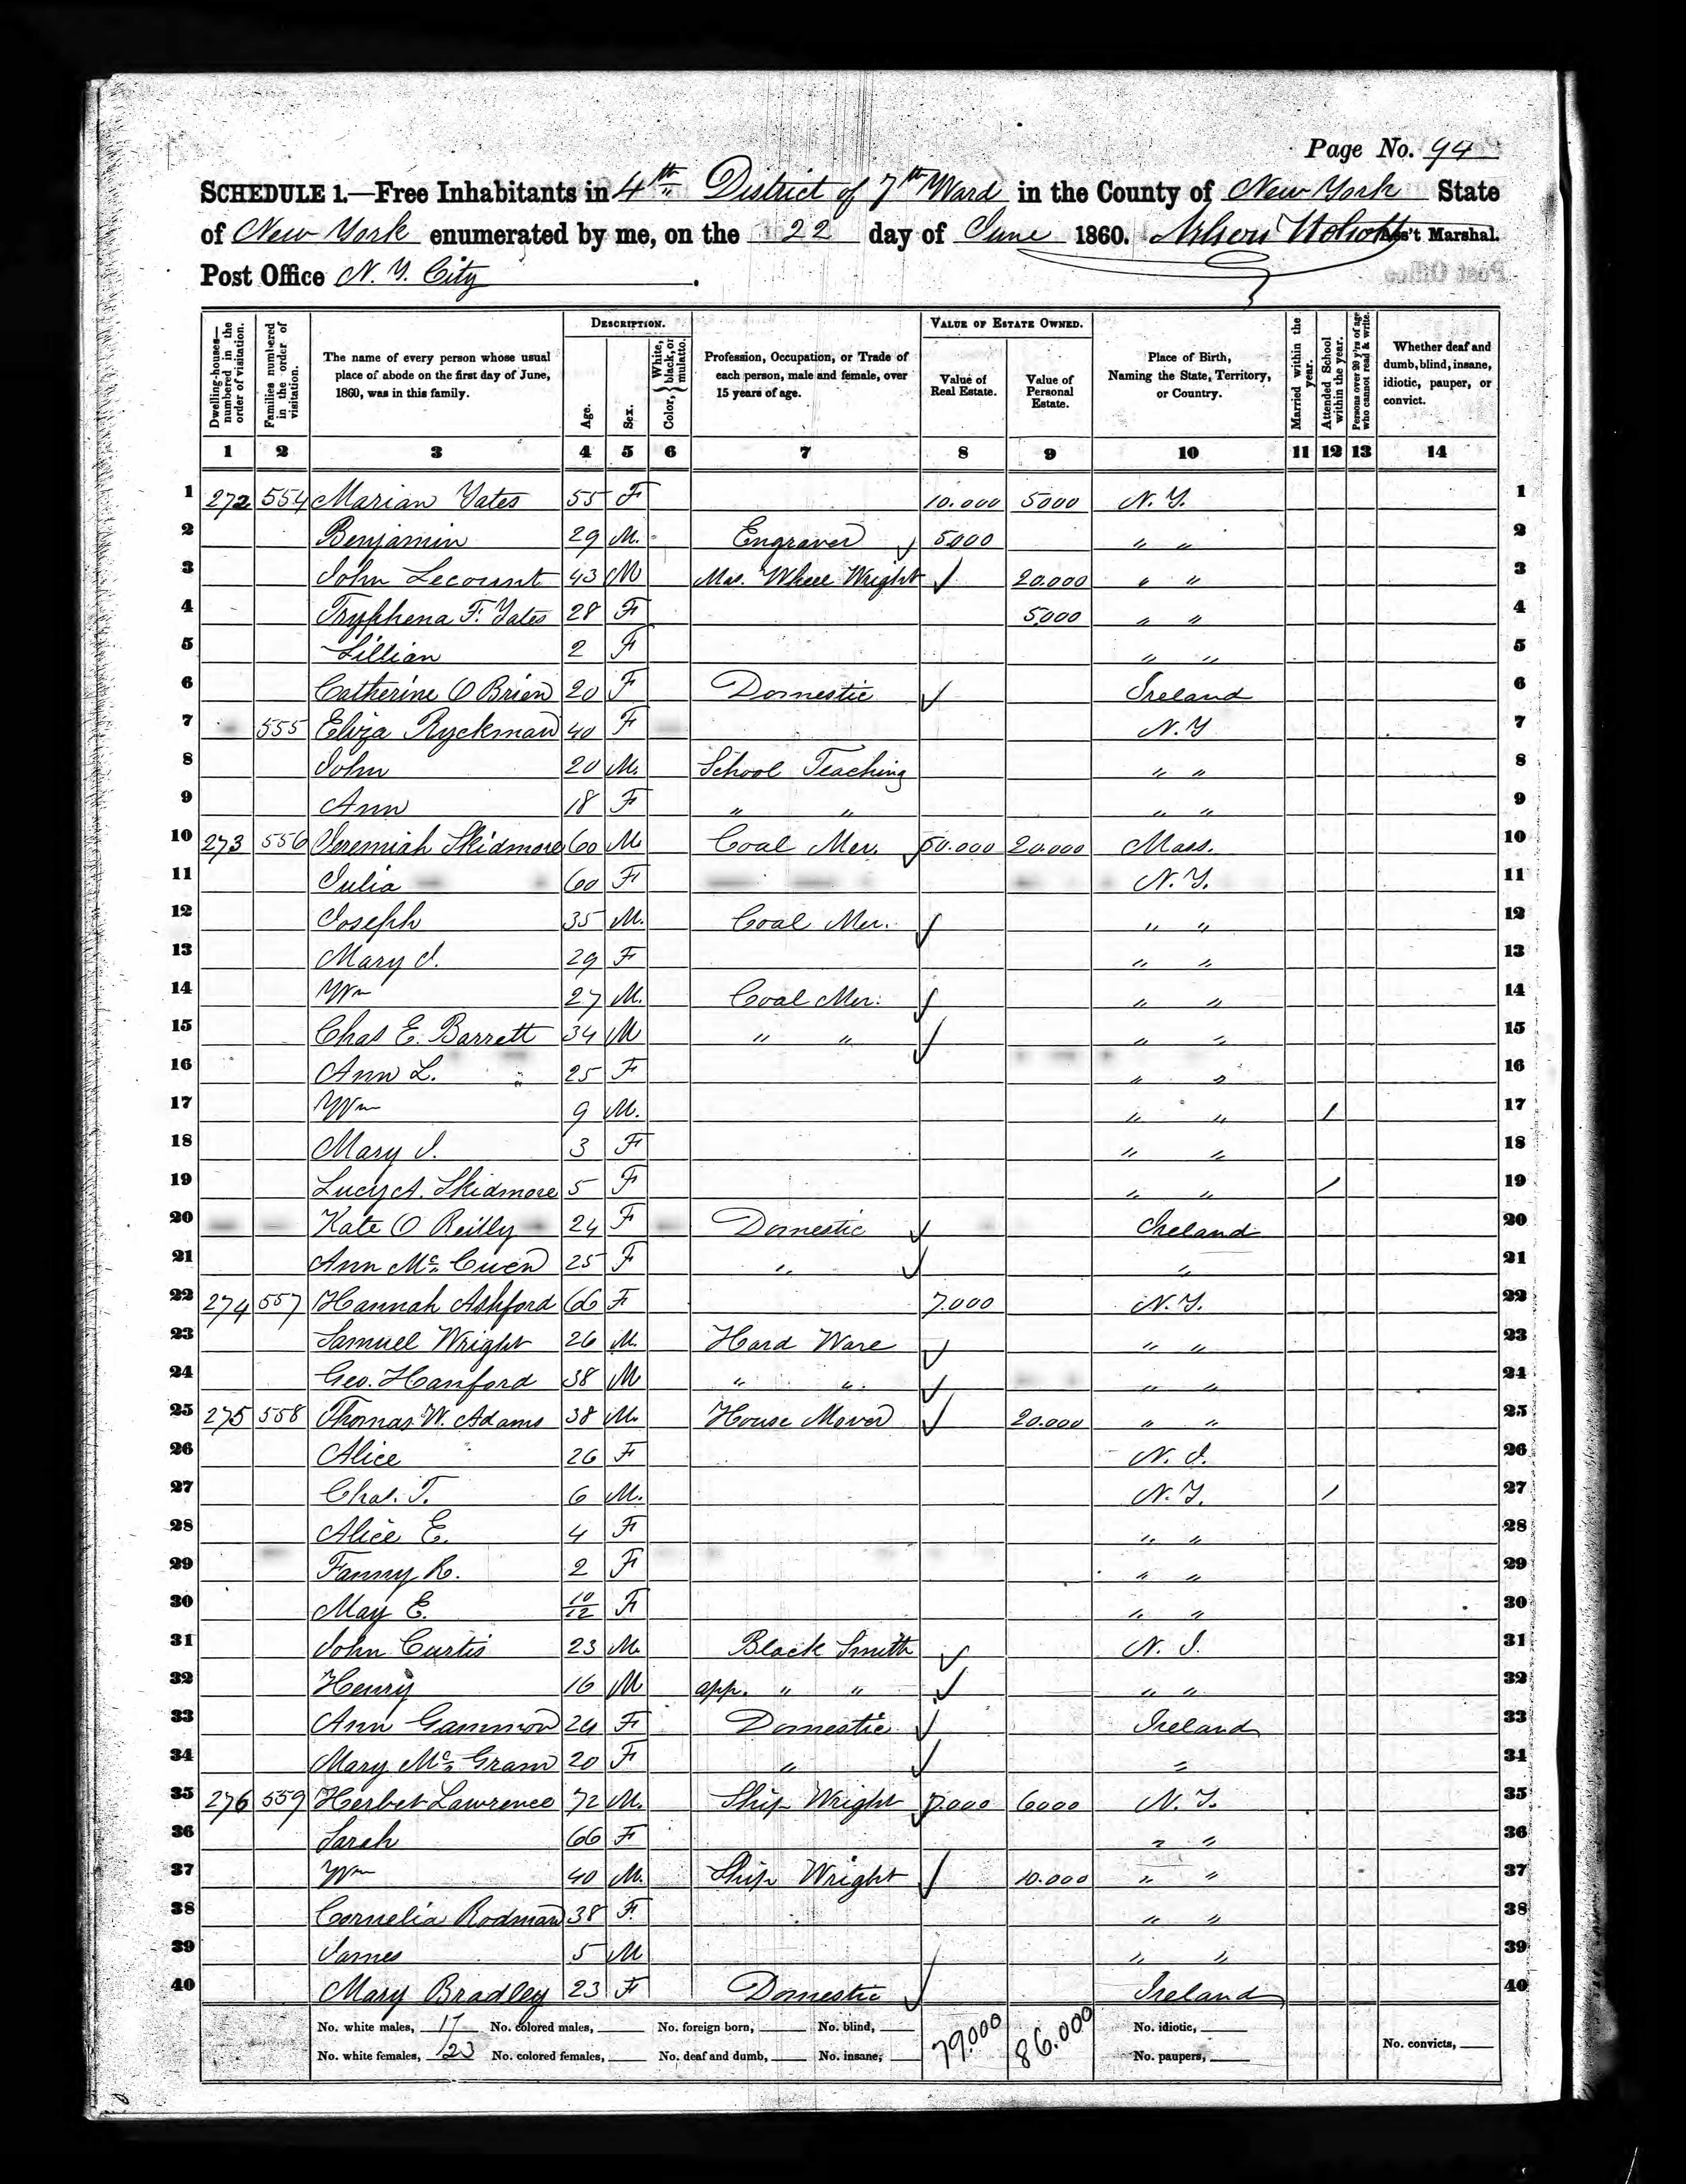 Page No. 94
SCHEDULE 1.—Free Inhabitants in 4th District of 7th Ward in the County of New York State
of New York enumerated by me, on the 22 day of June 1860. Ass't Marshal.
Post Office N. Y. City.
Dwelling-houses—numbered in the order of visitation. Families numbered in the order of visitation. The name of every person whose usual place of abode on the first day of June, 1860, was in this family. DESCRIPTION. Age. Sex. Color, { White, black, or mulatto. Profession, Occupation, or Trade of each person, male and female, over 15 years of age. VALUE OF ESTATE OWNED. Value of Real Estate. Value of Personal Estate. Place of Birth, Naming the State, Territory, or Country. Married within the year. Attended School within the year. Persons over 20 y'rs of age who cannot read & write. Whether deaf and dumb, blind, insane, idiotic, pauper, or convict.
1 2 3 4 5 6 7 8 9 10 11 12 13 14
1 272 554 Marian Yates 55 F 10.000 5000 N. Y. 1
2 Benjamin 29 M. Engraver ✓ 5000 " " 2
3 John Lecount 43 M Mas. Wheel Wright ✓ 20.000 " " 3
4 Tryphena F. Yates 28 F 5,000 " " 4
5 Lillian 2 F " " 5
6 Catherine O Brien 20 F Domestic ✓ Ireland 6
7 555 Eliza Ryckman 40 F N. Y 7
8 John 20 M. School Teaching " " 8
9 Ann 18 F " " " " 9
10 273 556 Jeremiah Skidmore 60 M Coal Mer. ✓ 50.000 20.000 Mass. 10
11 Julia 60 F N. Y. 11
12 Joseph 35 M. Coal Mer. ✓ " " 12
13 Mary J. 29 F " " 13
14 Wm 27 M. Coal Mer: ✓ " " 14
15 Chas E. Barrett 34 M " " ✓ " " 15
16 Ann L. " 25 F " " 16
17 Wm 9 M. " " / 17
18 Mary J. 3 F " " 18
19 Lucy A. Skidmore 5 F " " / 19
20 Kate O Reilly 24 F Domestic ✓ Ireland 20
21 Ann Mc Cuen 25 F " ✓ " 21
22 274 557 Hannah Ashford 66 F 7.000 N. Y. 22
23 Samuel Wright 26 M. Hard Ware ✓ " " 23
24 Geo. Hanford 38 M " " ✓ " " 24
25 275 558 Thomas W. Adams 38 M. House Mover ✓ 20.000 " " 25
26 Alice 26 F N. J. 26
27 Chas. T. 6 M. N. Y. / 27
28 Alice E. 4 F " " 28
29 Fanny R. 2 F " " 29
30 May E. 10/12 F " " 30
31 John Curtis 23 M. Black Smith ✓ N. J. 31
32 Henry 16 M app. " " ✓ " " 32
33 Ann Gammon 24 F Domestic ✓ Ireland 33
34 Mary Mc Gram 20 F " ✓ " 34
35 276 559 Herbet Lawrence 72 M. Ship Wright ✓ 7.000 6000 N. Y. 35
36 Sarah 66 F " " 36
37 Wm 40 M. Ship Wright ✓ 10.000 " " 37
38 Cornelia Rodman 38 F. " " 38
39 James 5 M " " 39
40 Mary Bradley 23 F Domestic ✓ Ireland 40
No. white males, 17 No. colored males, No. foreign born, No. blind, 79.000 86.000 No. idiotic,
No. white females, 23 No. colored females, No. deaf and dumb, No. insane, No. paupers, No. convicts,